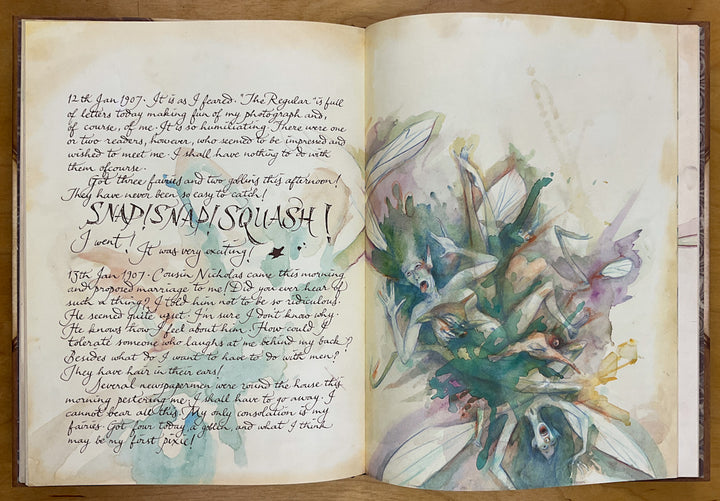 12th Jan 1907. It is as I feared. "The Regular" is full
of letters today making fun of my photograph and,
of course, of me. It is so humiliating. There were one
or two readers, however, who seemed to be impressed and
wished to meet me. I shall have nothing to do with
them ofcourse.
Got three fairies and two goblins this afternoon!
They have never been so easy to catch!
SNAP! SNAP! SQUASH!
I went! It was very exciting!
13th Jan 1907. Cousin Nicholas came this morning
and proposed marriage to me! Did you ever hear of
such a thing? I told him not to be so ridiculous.
He seemed quite upset. I'm sure I don't know why.
He knows how I feel about him. How could I
tolerate someone who laughs at me behind my back?
Besides what do I want to have to do with men?
They have hair in their ears!
Several newspapermen were round the house this
morning pestering me. I shall have to go away. I
cannot bear all this. My only consolation is my
fairies. Got four today, a goblin, and what I think
may be my first pixie!